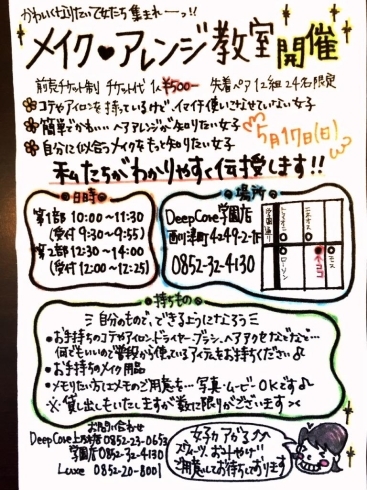 かわいくなりたい女子たち集まれーっ!!
メイク♥アレンジ教室開催
前売チケット制 チケット代 1人¥500- 先着ペア12組24名限定
コテやアイロンを持っているけど、イマイチ使いこなせていない女子
簡単でかわいいヘアアレンジが知りたい女子
自分に似合うメイクをもっと知りたい女子
5月17日(日)
私たちがわかりやすく伝授します!!
日時
第1部 10:00〜11:30
(受付 9:30〜9:55)
第2部 12:30〜14:00
(受付 12:00〜12:25)
場所
DeepCove学園店
西川津町4249-2-1F
0852-32-4130
学園通り
ローソン
ココ
持ちもの
自分のもので、できるようになろう
・お手持ちのコテやアイロン、ドライヤー、ブラシ、ヘアアクセなどなど…
何でもいいので普段から使っているアイテムをお持ちください♪
・お手持ちのメイク用品
・メモりたい方はメモのご用意を… 写真・ムービーOKです♪
※貸し出しもいたしますが数に限りがございます
お問い合わせ
DeepCove上乃木店 0852-23-0653
学園店 0852-32-4130
Luxe 0852-20-8001
女子力アガる↗↗
スウィーツ、お土産付♡
ご用意してお待ちしております